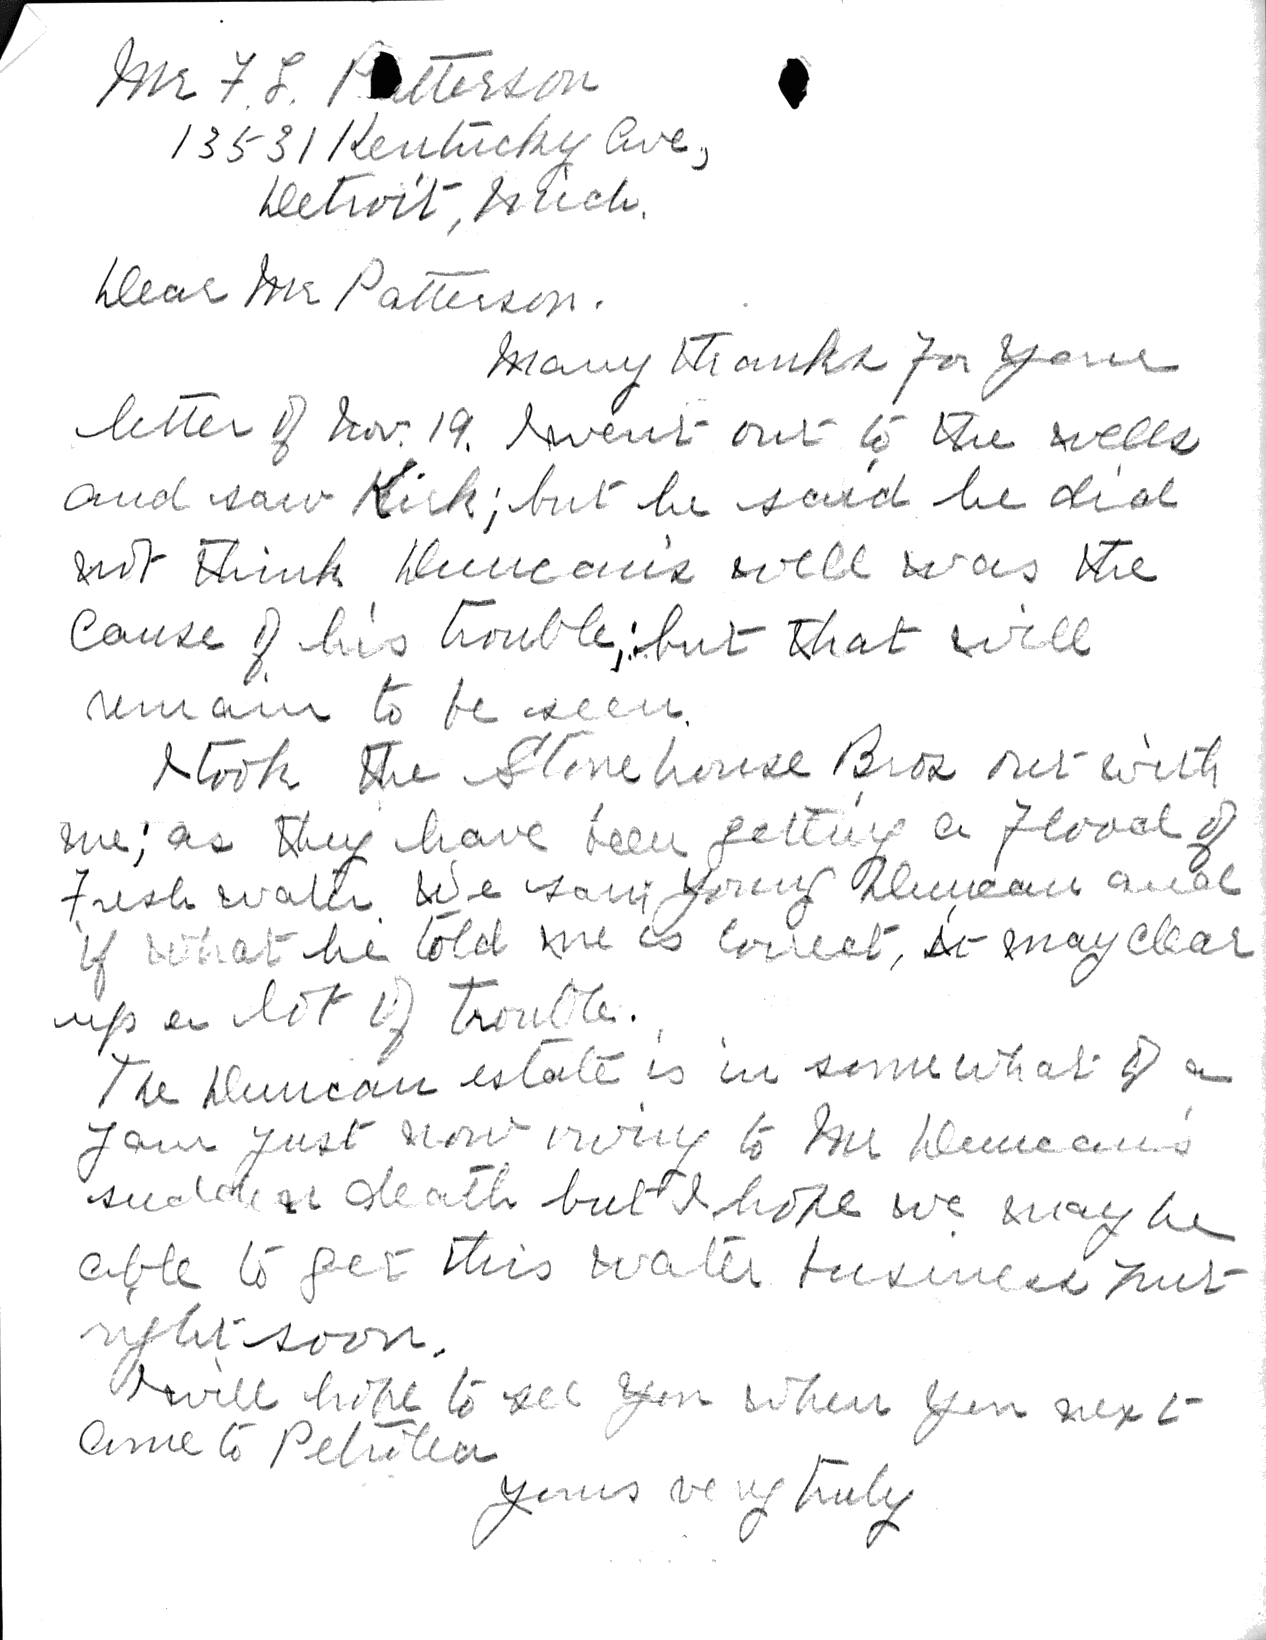 Mr F. L. Patterson
13531 Kentucky Ave,
Detroit, Mich.
Dear Mr Patterson.
Many thanks for your
letter of Nov. 19. I went out to the wells
and saw Kirk; but he said he did
not think Duncan's well was the
cause of his trouble; but that will
remain to be seen.
I took the Stonehouse Bros out with
me; as they have been getting a flood of
fresh water. We saw young Duncan and
if what he told me is correct, it may clear
up a lot of trouble.
The Duncan estate is in somewhat of a
jam just now owing to Mr Duncan's
sudden death but I hope we may be
able to get this water business put
right soon.
I will hope to see you when you next
come to Petrolea
Yours very truly